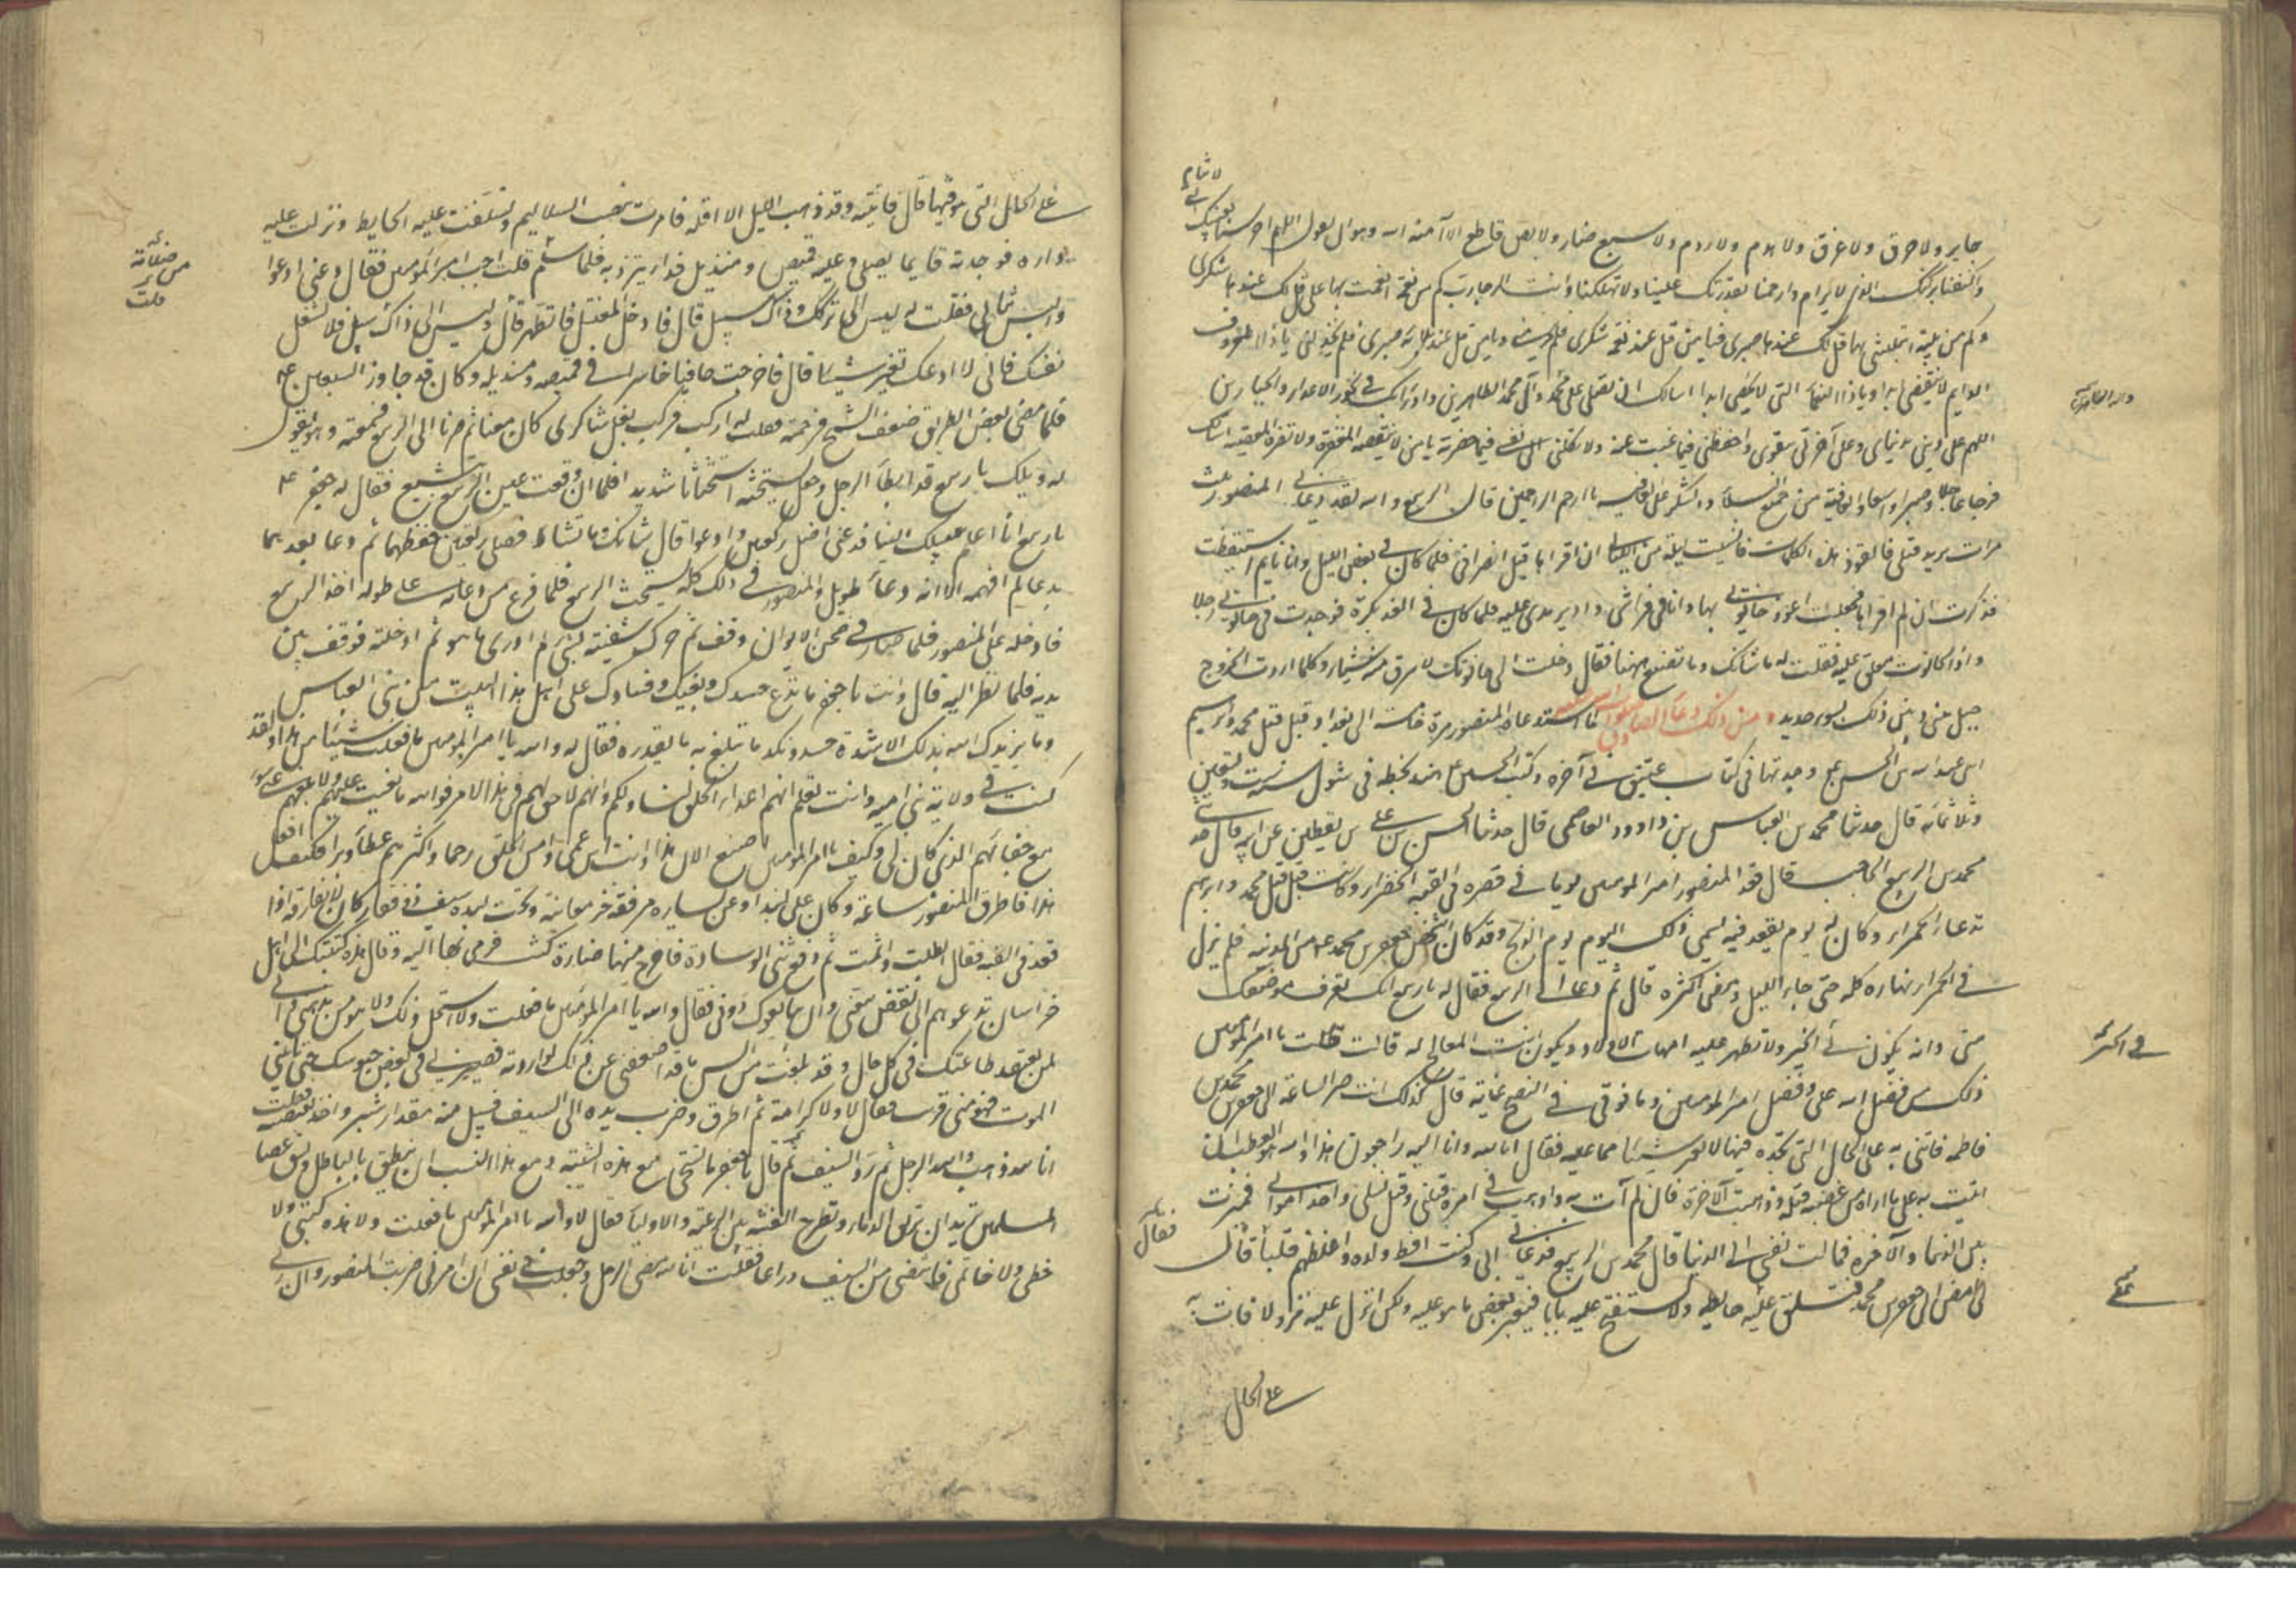 لا تنام
جابر ولا حرق ولا غرق ولا هدم ولا ردم ولا سبع ضار ولا لص قاطع الا آمنه الله وهو ان يقول اللهم احرسنا بعينك التى
واكنفنا بركنك الذى لا يرام وارحمنا بقدرتك علينا ولا تهلكنا وانت الرجا رب كم من نعمة انعمت بها على قل لك عندها شكرى
وكم من بلية ابتليتنى بها قل لك عندها صبرى فيا من قل عند نعمته شكرى فلم يحرمنى ويا من قل عند بلائه صبرى فلم يخذلنى يا ذا المعروف
الدايم لا ينقضى ابدا ويا ذا النعماء التى لا يحصى ابدا اسالك ان تصلى على محمد وآل محمد الطاهرين وادرأ بك فى نحور الاعداء والجبارين
اللهم اعنى على دينى بدنياى وعلى آخرتى بتقوى واحفظنى فيما غبت عنه ولا تكلنى الى نفسى فيما حضرته يا من لا تنقصه المغفرة ولا تضره المعصية اسالك
فرجا عاجلا وصبرا واسعا والعافية من جميع البلاء والشكر على العافية يا ارحم الراحمين قال الربيع والله لقد دعانى المنصور ثلث
مرات يريد قتلى فاتعوذ بهذه الكلمات فانسيت ليلة من الليالى ان اقراها قبل انصرافى فلما كان فى بعض الليل وانا نايم استيقظت
فذكرت انى لم اقراها فجعلت اعوذ حانوتى بها وانا فى فراشى وادير يدى عليه فلما كان فى الغد بكرة فوجدت فى حانوتى رجلا
واذا الحانوت مغلق عليه فقلت له ما شانك وما تصنع ههنا فقال دخلت الى حانوتك لاسرق منه شيئا وكلما اردت الخروج
حيل بينى وبين ذلك بسور حديد ومن ذلك دعاء الصادق لما استدعاه المنصور مرة خامسة الى بغداد قبل قتل محمد وابرهيم
ابنى عبد الله بن الحسن وجدتها فى كتاب عتيق فى آخره وكتب الحسين بن على بن هند بخطه فى شوال سنة ست وتسعين
وثلاثمائه قال حدثنا محمد بن العباس بن داوود العاصمى قال حدثنا الحسن بن على بن يقطين عن ابيه قال حدثنى
محمد بن الربيع الحاجب قال قعد المنصور امير المومنين يوما فى قصره فى القبة الخضراء وكانت قبل قتل محمد وابرهيم
تدعا الحمراء وكان له يوم يقعد فيه يسمى ذلك اليوم يوم الذبح وقد كان اشخص جعفر بن محمد من المدينه فلم يزل
فى الحمراء نهاره كله حتى جاء الليل ومضى اكثره قال ثم دعا ابى الربيع فقال له يا ربيع انك تعرف موضعك
منى وانه يكون لى الخبر ولا تظهر عليه امهات الاولاد ويكون انت المعالج له قال قلت يا امير المومنين
ذلك من فضل الله على وفضل امير المومنين وما فوقى فى النصح غاية قال كذلك انت صر الساعة الى جعفر بن محمد بن
فاطمه فاتنى به على الحال التى تجده فيها لا تغير شيئا مما عليه فقال انا لله وانا اليه راجعون هذا والله هو العطب ان
اتيت به على ما اراه من غضبه قتله وذهبت الآخرة وان لم آت به وادهنت فى امره قتلنى وقتل نسلى واخذ اموالى فميزت
بين الدنيا والآخره فمالت نفسى الى الدنيا قال محمد بن الربيع فدعانى ابى وكنت افظ ولده واغلظهم قلبا فقال
لى امض الى جعفر بن محمد فتسلق عليه حائطه ولا تستفتح عليه بابا فيغير بعض ما هو عليه ولكن انزل عليه نزولا فات به
على الحال
على الحال التى هو فيها قال فاتيته وقد ذهب الليل الا اقله فامرت بنصب السلاليم وتسلقت عليه الحايط ونزلت عليه
داره فوجدته قايما يصلى وعليه قميص ومنديل قد ائتزر به فلما سلم قلت اجب امير المومنين فقال دعنى ادعوا
والبس ثيابى فقلت له ليس الى تركك وذلك سبيل قال فادخل المغتسل فاتطهر قال وليس الى ذاك سبيل فلا تشغل
نفسك فانى لا ادعك تغير شيئا قال فاخرجته حافيا حاسرا فى قميصه ومنديله وكان قد جاوز السبعين
فلما مضى بعض الطريق ضعف الشيخ فرحمته فقلت له اركب فركب بغل شاكرى كان معنا ثم صرنا الى الربيع فسمعته وهو يقول
له ويلك يا ربيع قد ابطأ الرجل وجعل يستحثه استحثاثا شديدا فلما ان وقعت عين الربيع فقال له جعفر
يا ربيع انا اعلم ميلك الينا فدعنى اصلى ركعتين وادعوا قال شانك وما تشاء فصلى ركعتين خففهما ثم دعا بعدهما
بدعا لم افهمه الا انه دعاء طويل والمنصور فى ذلك كله يستحث الربيع فلما فرغ من دعائه على طوله اخذ الربيع
فادخله على المنصور فلما صار فى صحن الايوان وقف ثم حرك شفتيه بشئ لم ادرى ما هو ثم ادخلته فوقف بين
يديه فلما نظر اليه قال وانت يا جعفر ما تدع حسدك وبغيك وفسادك على اهل هذا البيت من بنى العباس
وما يزيدك الله بذلك الا شدة حسد ونكد ما تبلغ به ما تقدره فقال له والله يا امير المومنين ما فعلت شيئا من هذا ولقد
كنت فى ولاية بنى اميه وانت تعلم انهم اعداء الخلق لنا ولكم وانهم لا حق لهم فى هذا الامر فوالله ما بغيت عليهم ولا بلغهم عنى سوء
مع جفائهم الذى كان لى وكيف يا امير المومنين اصنع الان هذا وانت ابن عمى وامس الخلق رحما واكثرهم عطاء وبرا فكيف افعل
هذا فاطرق المنصور ساعة وكان على لبد وعن يساره مرفقة خرمقانية وتحت لبده سيف ذو فقار كان لا يفارقه اذا
قعد فى القبه فقال ابطلت واثمت ثم رفع ثنى الوسادة فاخرج منها اضبارة كتب فرمى بها اليه وقال هذه كتبك الى اهل
خراسان تدعوهم الى نقض بيعتى وان يبايعوك دونى فقال والله يا امير المومنين ما فعلت ولا استحل ذلك ولا هو من مذهبى وانى
لمن يعتقد طاعتك فى كل حال وقد بلغت من السن ما قد اضعفنى عن ذلك لو اردته فصيرنى فى بعض حبوسك حتى ياتينى
الموت فهو منى قريب فقال لا ولا كرامة ثم اطرق وضرب يده الى السيف فسل منه مقدار شبر واخذ بمقبضه فقلت
انا لله ذهب والله الرجل ثم رد السيف ثم قال يا جعفر ما تستحى مع هذه الشيبه ومع هذا النسب ان تنطق بالباطل وتشق عصا
المسلمين تريد ان تريق الدماء وتطرح الفتنه بين الرعية والاولياء فقال لا والله يا امير المومنين ما فعلت ولا هذه كتبى ولا
خطى ولا خاتمى فانتضى من السيف ذراعا فقلت انا لله مضى الرجل وجعلت فى نفسى ان امرنى ضربت المنصور وان